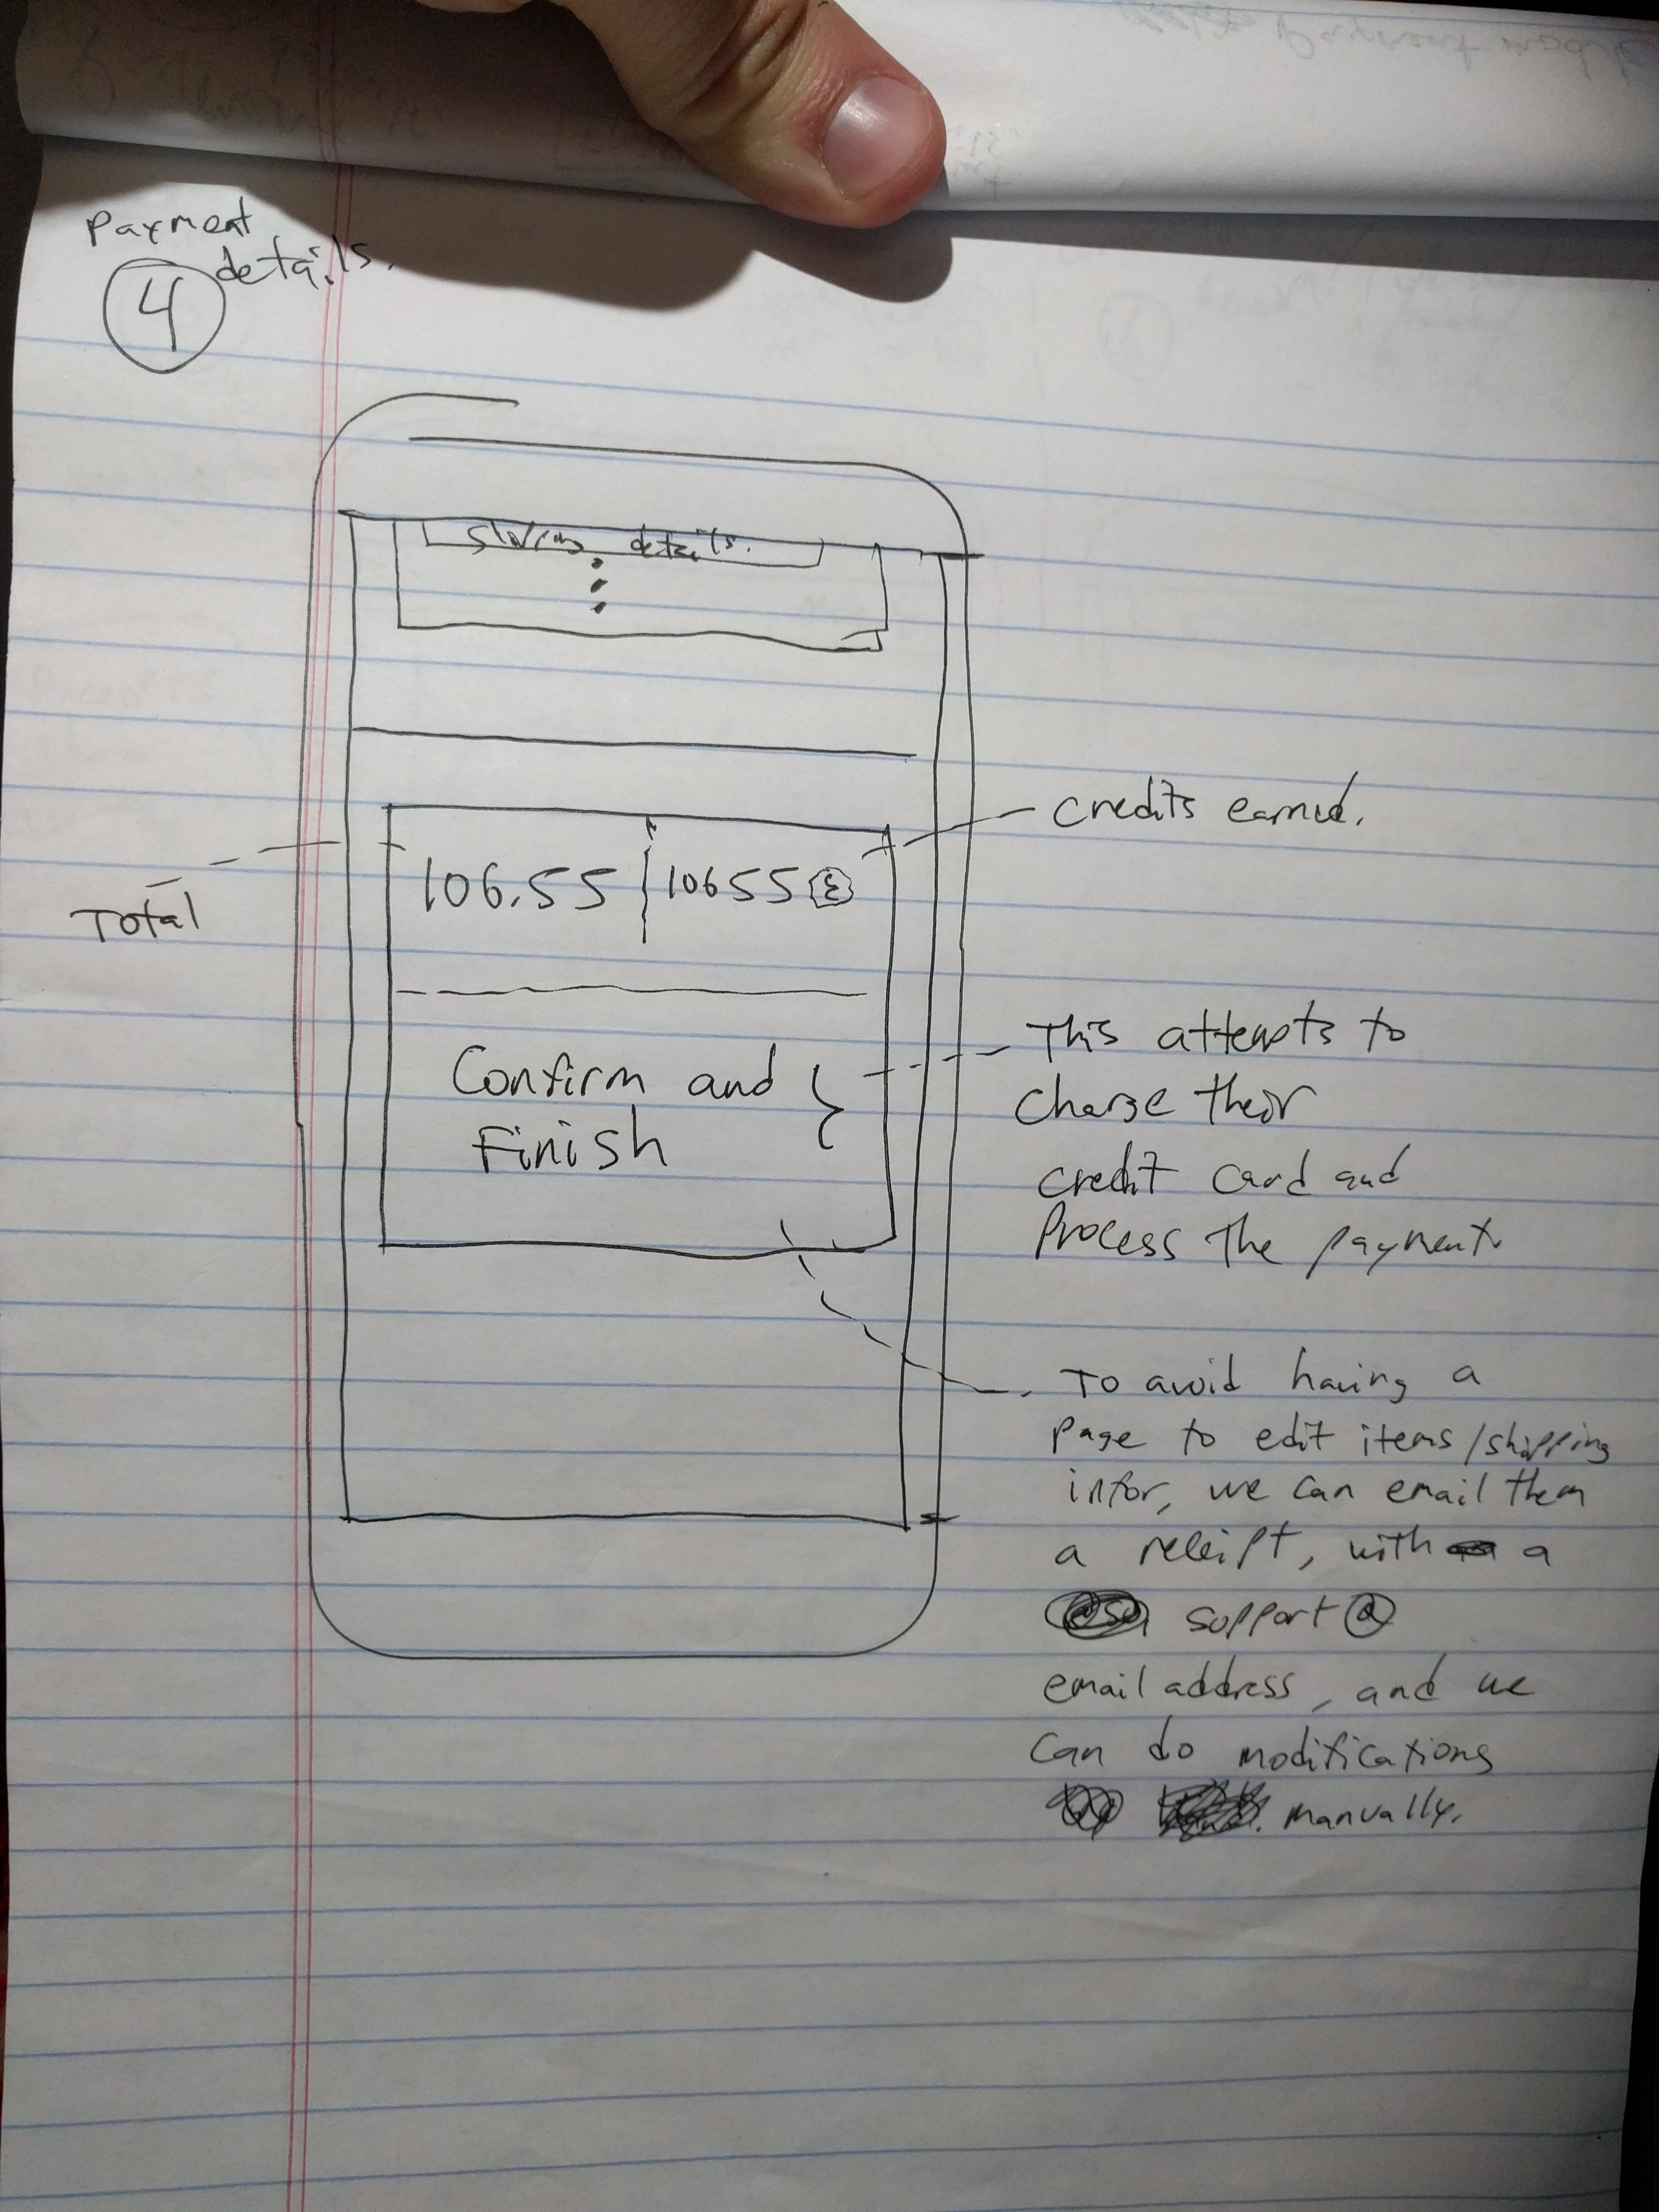 Payment
details.
4
details.
106.55 | 10655
Total
credits earned.
Confirm and
Finish
This attempts to
charge their
credit card and
Process the payment.
To avoid having a
page to edit items/shipping
infor, we can email them
a receipt, with a
support @
email address, and we
can do modifications
manually.